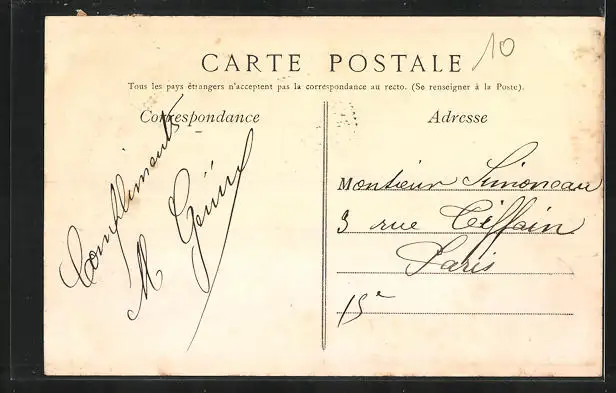 10
CARTE POSTALE
Tous les pays étrangers n'acceptent pas la correspondance au recto. (Se renseigner à la Poste).
Correspondance
Compliments
M
Adresse
Monsieur Simoneau
3 rue Tiffain
Paris
15e